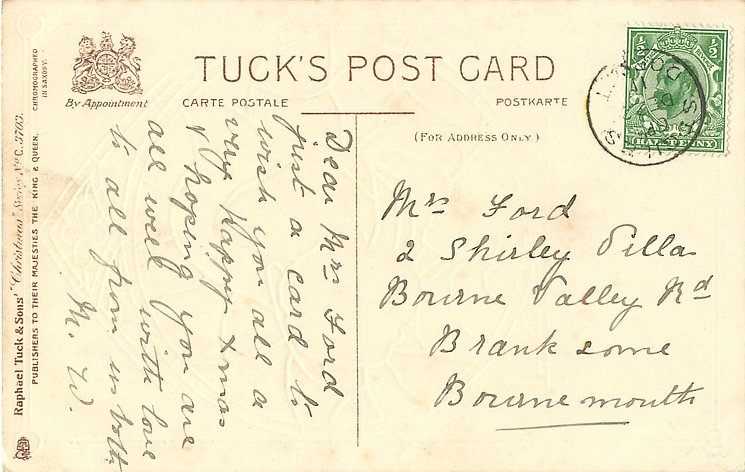 TUCK'S POST CARD
By Appointment
CARTE POSTALE
POSTKARTE
(FOR ADDRESS ONLY.)
CHROMOGRAPHED
IN SAXONY.
Raphael Tuck & Sons' "Christmas" Series No C. 3703.
PUBLISHERS TO THEIR MAJESTIES THE KING & QUEEN.
Dear Mrs Ford
just a card to
wish you all a
very Happy Xmas
& hoping you are
all well with love
to all from us both
M. W.
Mrs Ford
2 Shirley Villa
Bourne Valley Rd
Branksome
Bournemouth
1/2 1/2
HALFPENNY